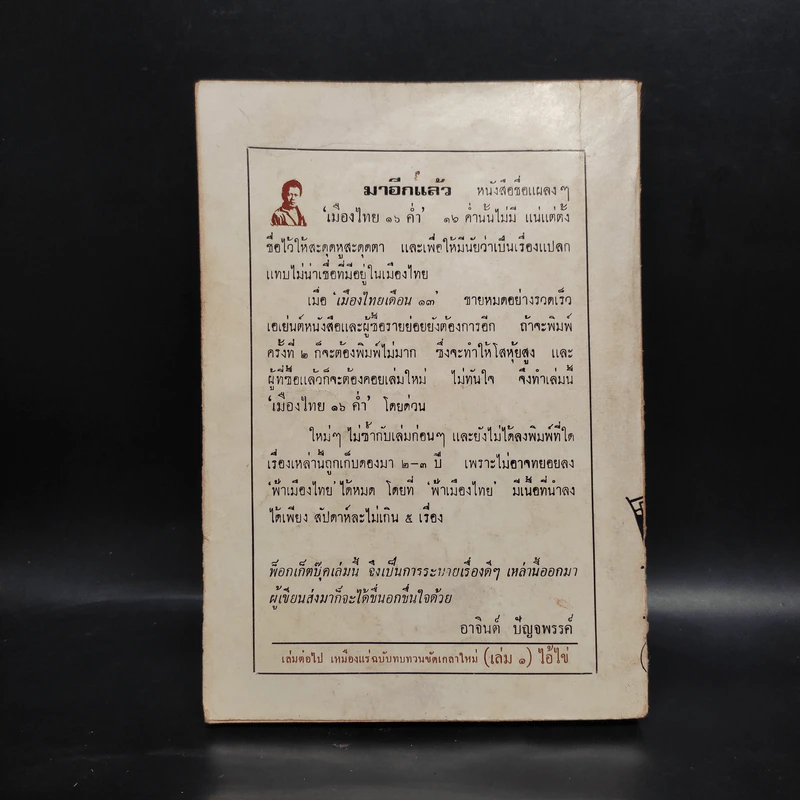 มาอีกแล้ว หนังสือชื่อแผลงๆ
'เมืองไทย ๑๖ ค่ำ' ๑๖ ค่ำนั้นไม่มี แน่แต่ตั้ง
ชื่อไว้ให้สะดุดหูสะดุดตา และเพื่อให้มีนัยว่าเป็นเรื่องแปลก
แทบไม่น่าเชื่อที่มีอยู่ในเมืองไทย
เมื่อ 'เมืองไทยเดือน ๑๓' ขายหมดอย่างรวดเร็ว
เอเย่นต์หนังสือและผู้ซื้อรายย่อยยังต้องการอีก ถ้าจะพิมพ์
ครั้งที่ ๒ ก็จะต้องพิมพ์ไม่มาก ซึ่งจะทำให้โสหุ้ยสูง และ
ผู้ที่ซื้อแล้วก็จะต้องคอยเล่มใหม่ ไม่ทันใจ จึงทำเล่มนี้
'เมืองไทย ๑๖ ค่ำ' โดยด่วน
ใหม่ๆ ไม่ซ้ำกับเล่มก่อนๆ และยังไม่ได้ลงพิมพ์ที่ใด
เรื่องเหล่านี้ถูกเก็บดองมา ๒-๓ ปี เพราะไม่อาจทยอยลง
'ฟ้าเมืองไทย' ได้หมด โดยที่ 'ฟ้าเมืองไทย' มีเนื้อที่นำลง
ได้เพียง สัปดาห์ละไม่เกิน ๕ เรื่อง
พ็อกเก็ตบุ๊คเล่มนี้ จึงเป็นการระบายเรื่องดีๆ เหล่านี้ออกมา
ผู้เขียนส่งมาก็จะได้ชื่นอกชื่นใจด้วย
อาจินต์ ปัญจพรรค์
เล่มต่อไป เหมืองแร่ฉบับทบทวนขัดเกลาใหม่ (เล่ม ๑) ไอ้ไข่